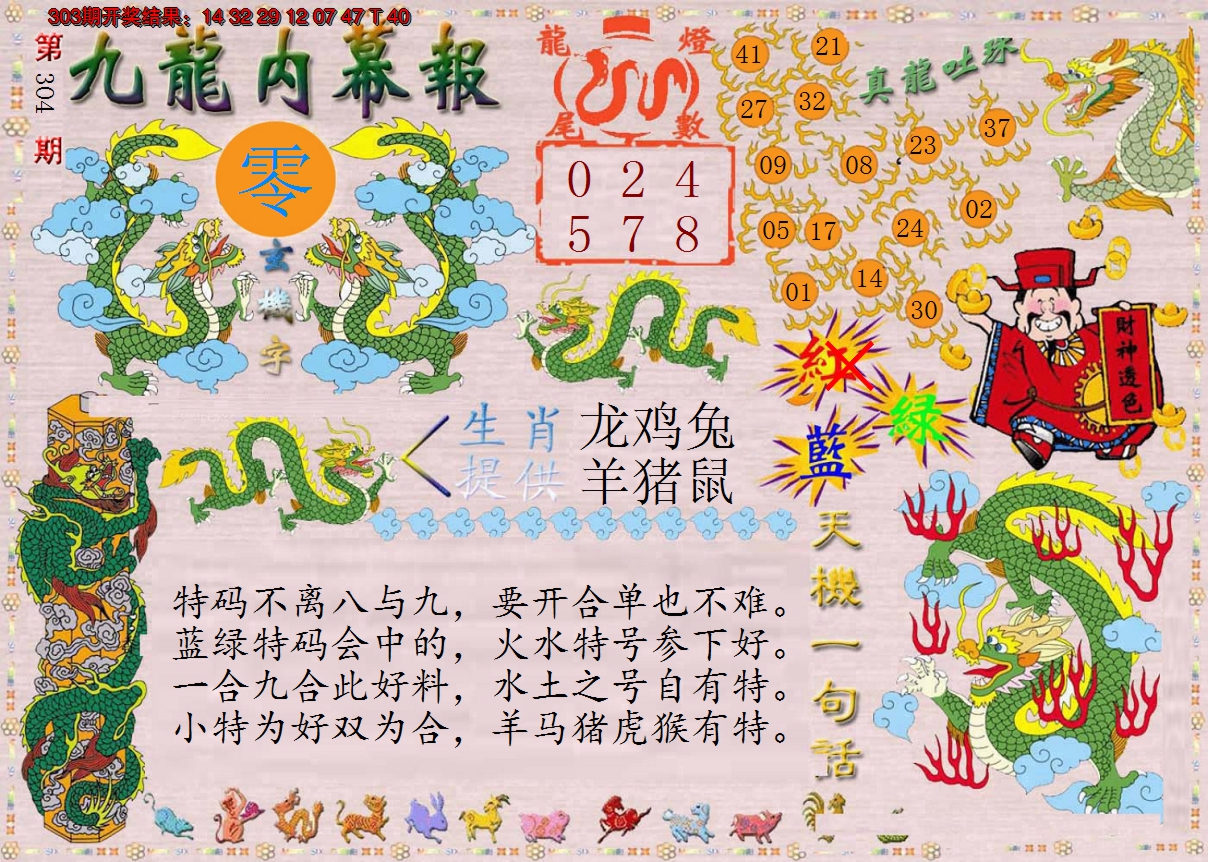 303期开奖结果：14 32 29 12 07 47 T 40
第304期
九龍内幕報
零
玄機字
龍燈
尾數
0 2 4
5 7 8
真龍吐珠
41
21
27
32
37
23
09
08
02
05
17
24
14
01
30
財神透色
紅
绿
藍
生肖提供
龙鸡兔
羊猪鼠
特码不离八与九，要开合单也不难。
蓝绿特码会中的，火水特号参下好。
一合九合此好料，水土之号自有特。
小特为好双为合，羊马猪虎猴有特。
天機一句话